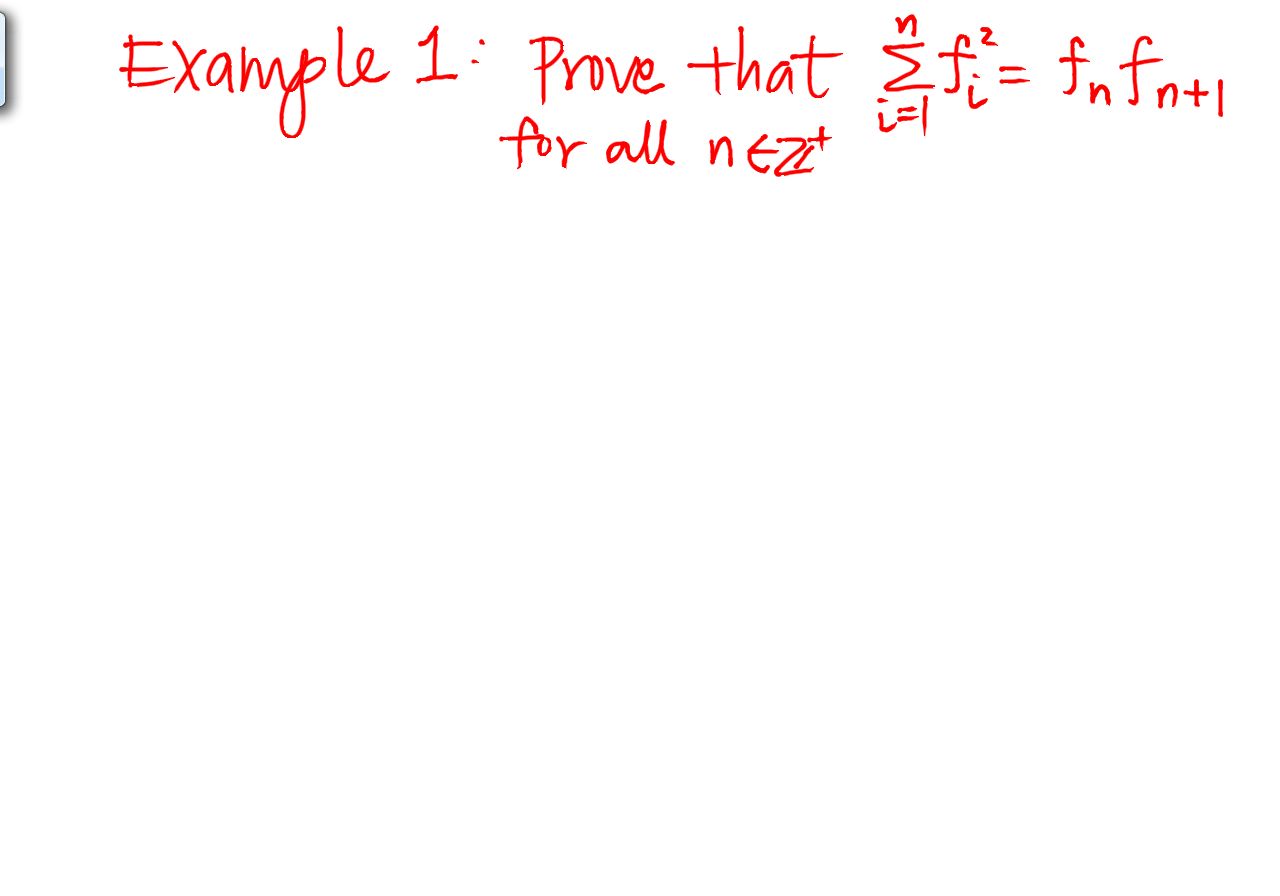 Example 1: Prove that $\sum_{i=1}^{n} f_i^2 = f_n f_{n+1}$
for all $n \in \mathbb{Z}^+$